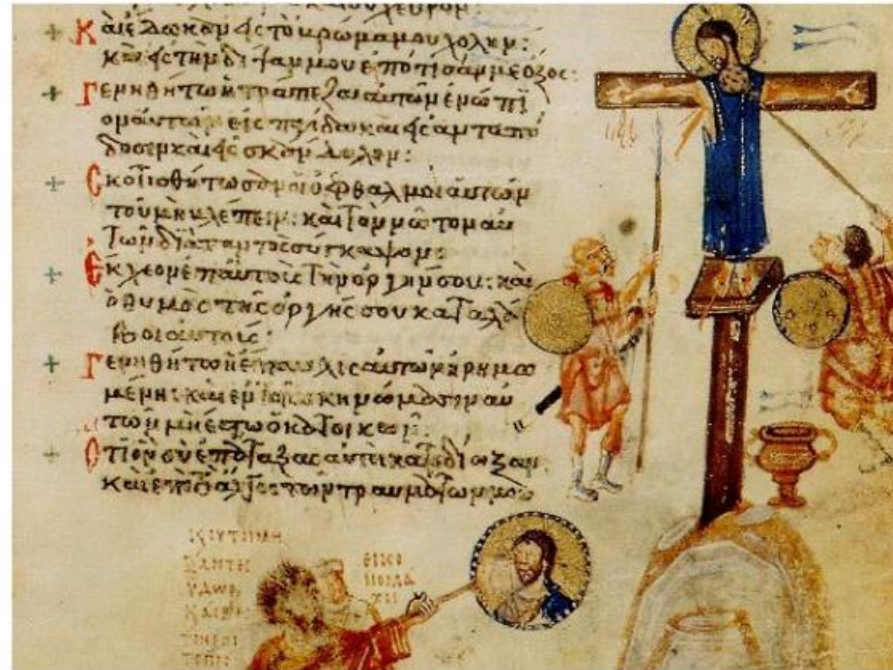 Καὶ ἔδωκαν εἰς τὸ βρῶμα μου χολήν:
καὶ εἰς τὴν δίψαν μου ἐπότισάν με ὄξος:
Γενηθήτω ἡ τράπεζα αὐτῶν ἐνώπι
ον αὐτῶν εἰς παγίδα καὶ εἰς ἀνταπό
δοσιν καὶ εἰς σκάνδαλον:
Σκοτισθήτωσαν οἱ ὀφθαλμοὶ αὐτῶν
τοῦ μὴ βλέπειν: καὶ τὸν νῶτον αὐ
τῶν διὰ παντὸς σύγκαμψον:
Ἔκχεον ἐπ' αὐτοὺς τὴν ὀργήν σου: καὶ
ὁ θυμὸς τῆς ὀργῆς σου καταλά
βοι αὐτούς:
Γενηθήτω ἡ ἔπαυλις αὐτῶν ἠρημω
μένη: καὶ ἐν τοῖς σκηνώμασιν αὐ
τῶν μὴ ἔστω ὁ κατοικῶν:
Ὅτι ὃν σὺ ἐπάταξας αὐτοὶ κατεδίωξαν
καὶ ἐπὶ τὸ ἄλγος τῶν τραυμάτων μου
ΕΙΚΟ
ΝΟΜΑ
ΧΟΙ
ΞΑΝΤΕΣ
ΥΔΩΡ